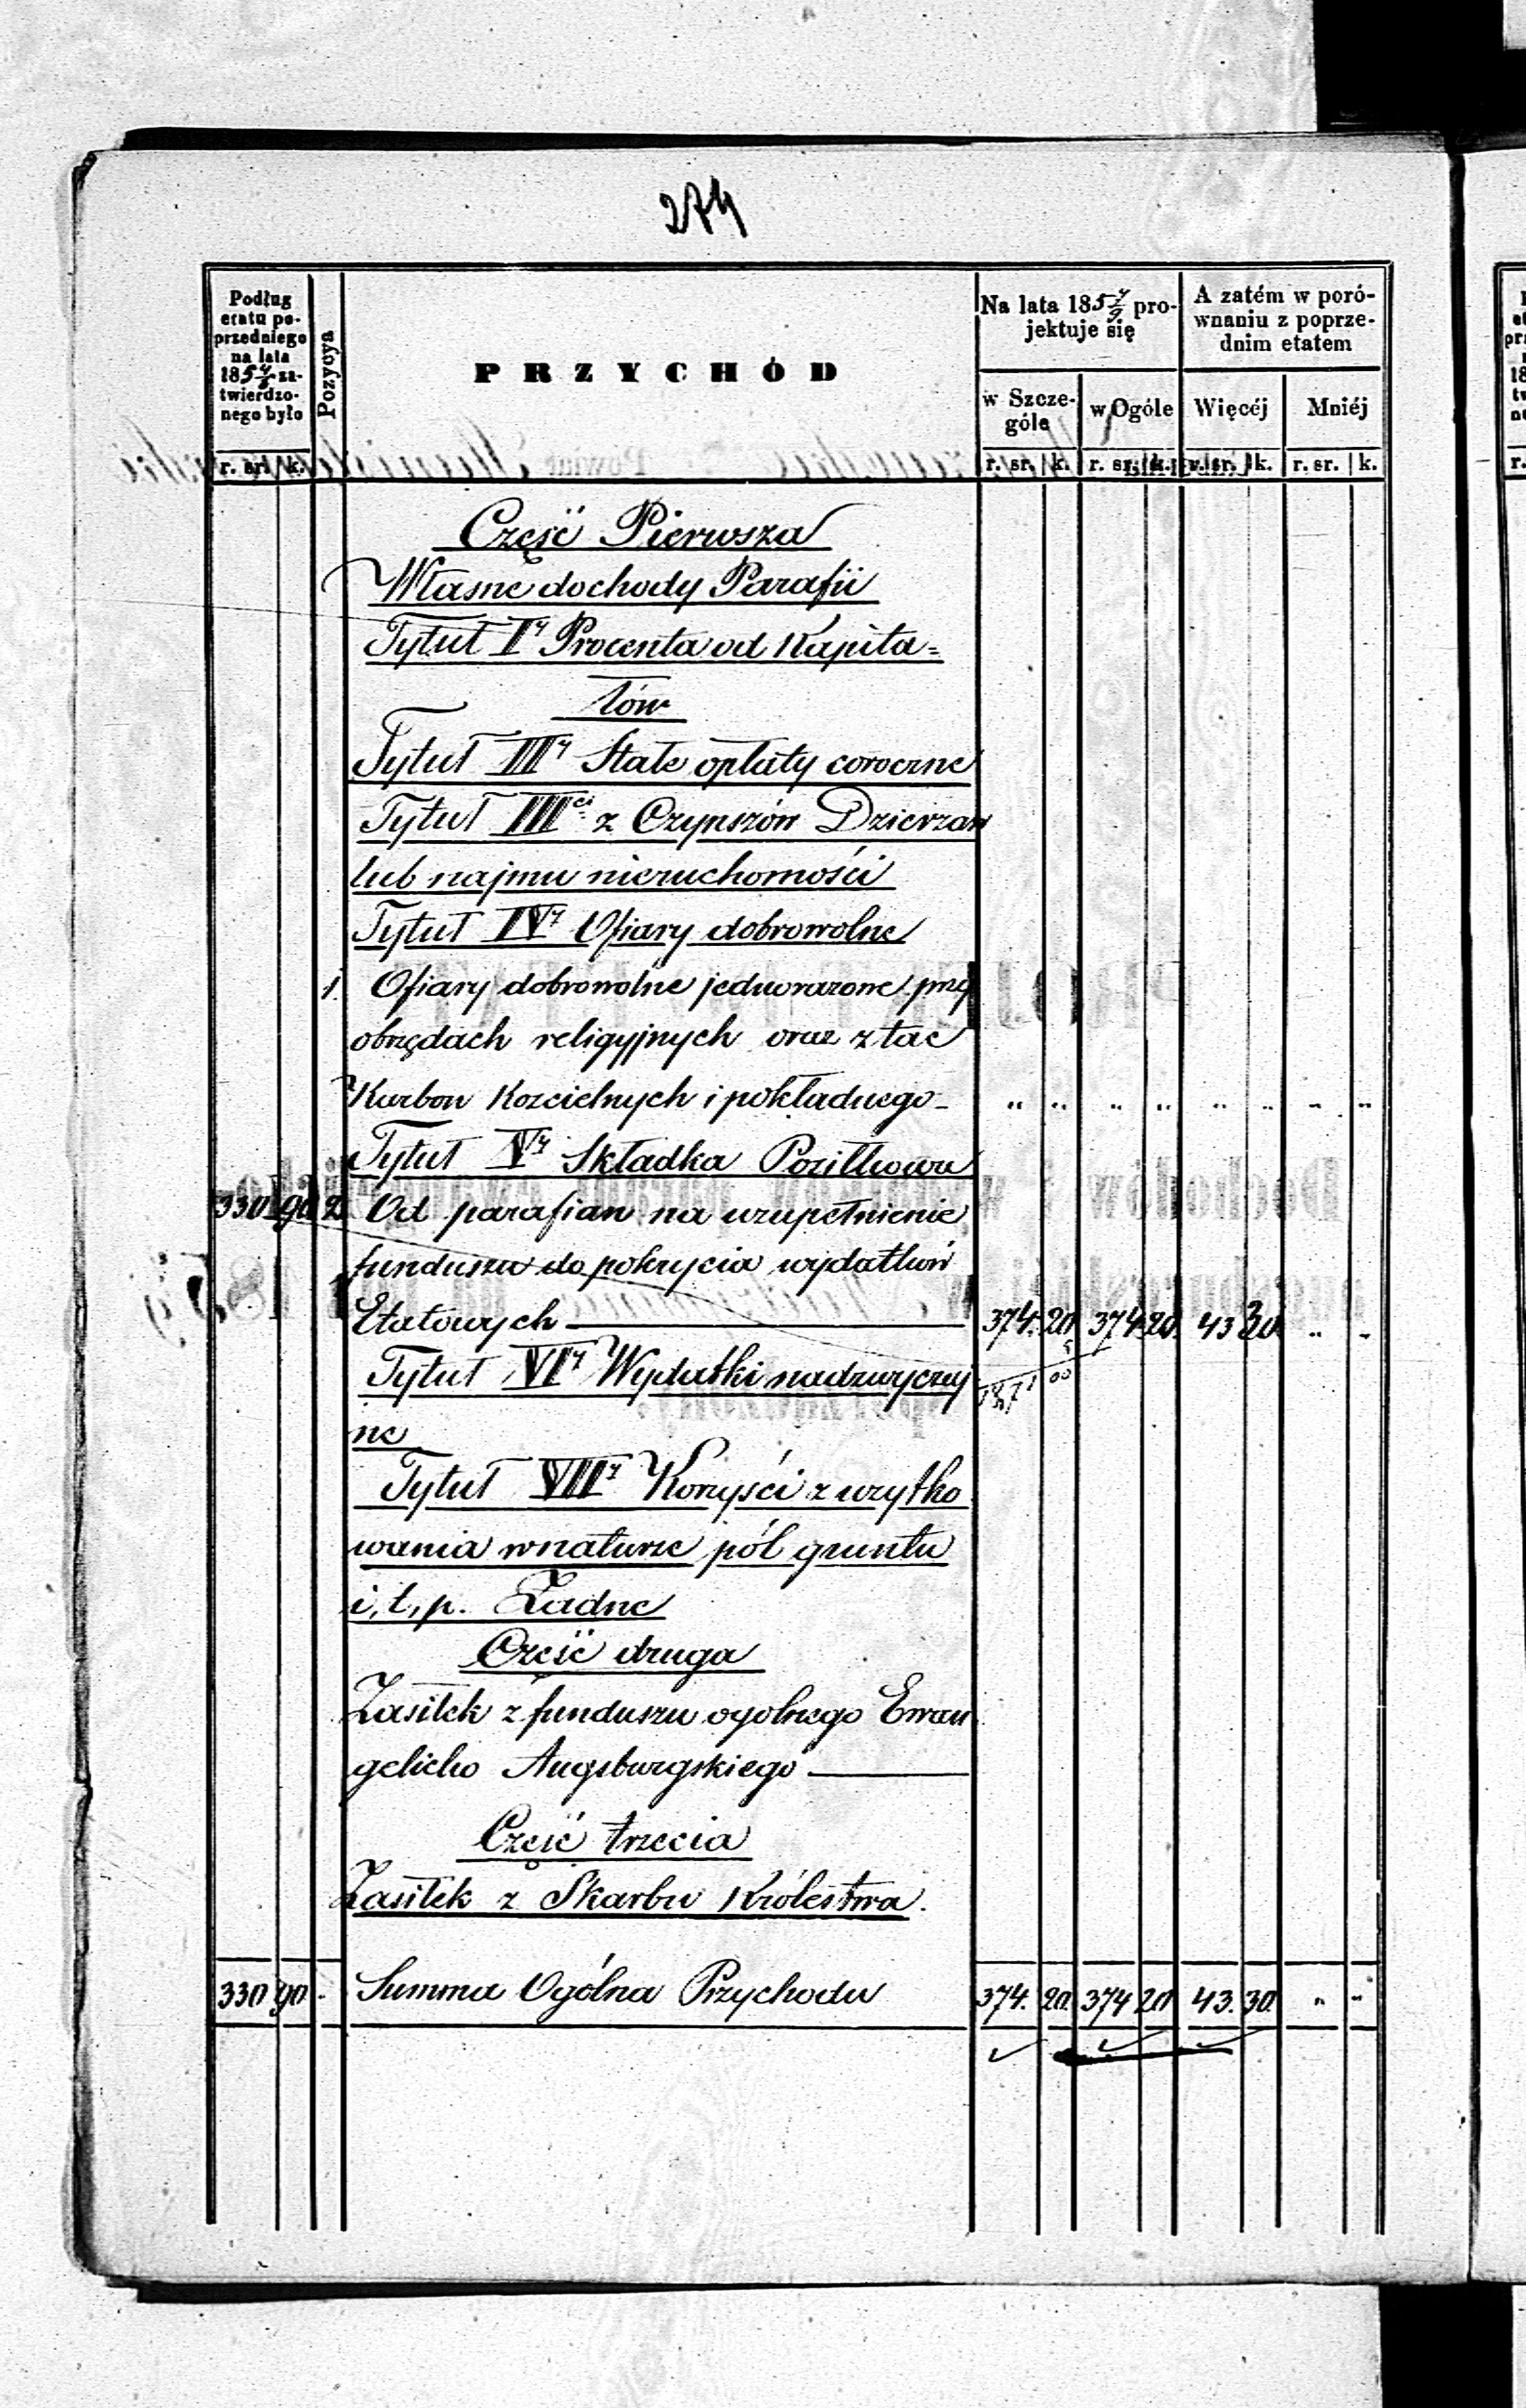 274
Podług
etatu po-
przedniego
na lata
185 za-
twierdzo-
nego było
Pozycya
PRZYCHÓD
Na lata 185 4/9 pro-
jektuje się
A zatém w poró-
wnaniu z poprze-
dnim etatem
w Szcze-
góle
w Ogóle
Więcéj
Mniéj
r. sr. k. r. sr. k. r. sr. k. r. sr. k. r. sr. k.
Część Pierwsza
Własne dochody Parafii
Tytuł Iy Procenta od Kapita=
łów
Tytuł IIIy Stałe opłaty coroczne
Tytuł IIIci z Czynszów Dzierzaw
lub najmu nieruchomości
Tytuł IVy Ofiary dobrowolne
1. Ofiary dobrowolne jednorazowe przy
obrzędach religyjnych oraz z tac
Karbon Kozcielnych i pokładnego -
Tytuł Vy Składka Posiłkowa
330 90 2 Od parafian na uzupełnienie
funduszu do pokrycia wydatków
Etatowych 374. 20. 374. 20. 43 30 " "
Tytuł VIy Wydatki nadzwyczaj
ne
Tytuł VIIy Korzyści z uzytko
wania w naturze pól gruntu
i, t, p. Żadne
Część druga
Zasiłek z funduszu ogolnego Ewan
gelicko Augsburgskiego
Część trzecia
Zasiłek z Skarbu Królestwa.
330 90 - Summa Ogólna Przychodu 374. 20. 374 20 43. 30. " "